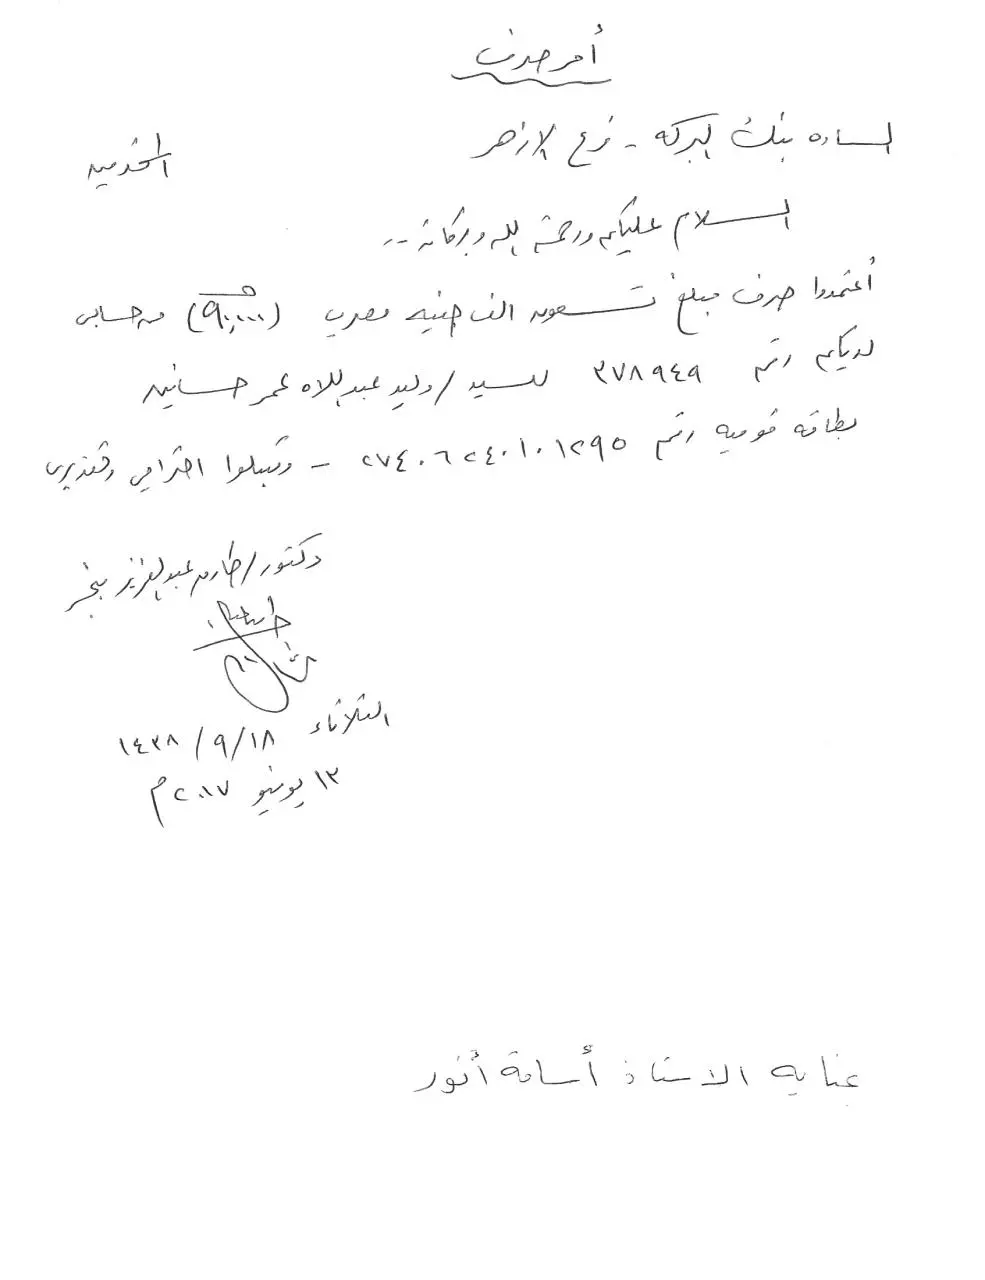 أمر صرف
الساده بنك البركه - فرع الازهر
المحترمين
السلام عليكم ورحمة الله وبركاته ..
أعتمدوا صرف مبلغ تسعون الف جنيه مصرى (٩٠,٠٠٠) من حسابى
لديكم رقم ٣٧٨٩٤٩ للسيد / وليد عبداللاه عمر حسانين
بطاقه قوميه رقم ٢٧٤٠٦٢٤٠١٠١٢٩٥ - وتقبلوا احترامى وتقديرى
دكتور / طارق عبدالعزيز
الثلاثاء ١٨ / ٩ / ١٤٣٨
١٣ يونيو ٢٠١٧م
عنايه الاستاذ أسامة أنور